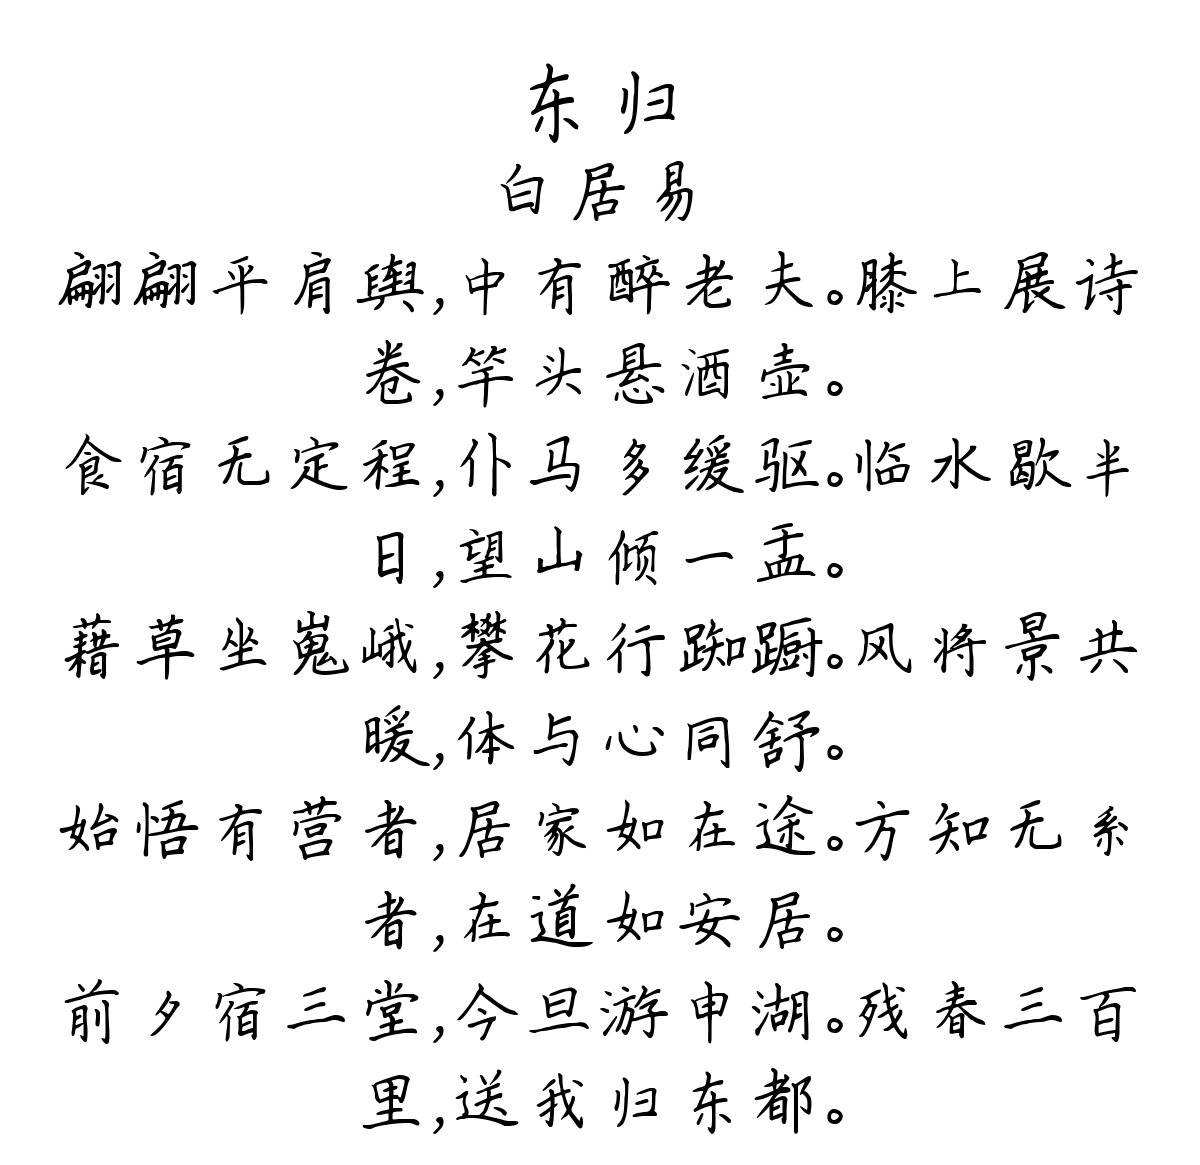 东归
白居易
翩翩平肩舆,中有醉老夫。膝上展诗
卷,竿头悬酒壶。
食宿无定程,仆马多缓驱。临水歇半
日,望山倾一盂。
藉草坐嵬峨,攀花行踟蹰。风将景共
暖,体与心同舒。
始悟有营者,居家如在途。方知无系
者,在道如安居。
前夕宿三堂,今旦游申湖。残春三百
里,送我归东都。